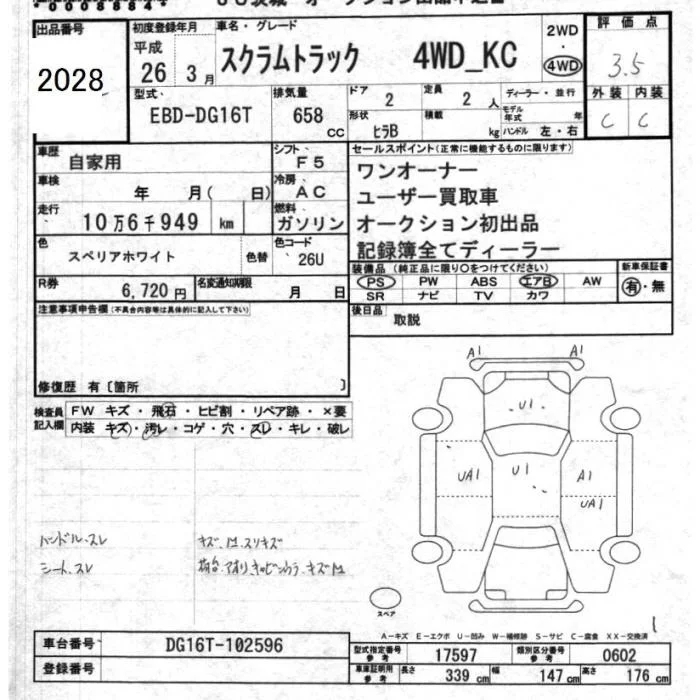 00088844
出品番号
2028
初度登録年月
平成
26 3月
車名・グレード
スクラムトラック 4WD_KC
2WD
・
4WD
評価点
3.5
外装 内装
C C
型式
EBD-DG16T
排気量
658 CC
ドア
2
定員
2 人
ディーラー・並行
形状
ヒラB
積載
kg
モデル年式 年
ハンドル 左・右
車歴
自家用
シフト
F5
車検
年 月( 日)
冷房
AC
走行
10万6千949 km
燃料
ガソリン
色
スペリアホワイト
色替
色コード
26U
R券
6,720円
名変通知期限
月 日
セールスポイント(正常に機能するものに限ります)
ワンオーナー
ユーザー買取車
オークション初出品
記録簿全てディーラー
装備品(純正品に限り○をつけてください)
PS PW ABS エアB AW
SR ナビ TV カワ
新車保証書
有・無
後日品
取説
注意事項申告欄(不具合内容等は具体的に記入して下さい)
修復歴 有〔箇所 〕
検査員記入欄
FW キズ・飛石・ヒビ割・リペア跡・×要
内装 キズ・汚レ・コゲ・穴・スレ・キレ・破レ
A1 A1
U1
UA1 U1 A1
UA1
ハンドル.スレ
シート.スレ
スペア
A−キズ E−エクボ U−凹み W−補修跡 S−サビ C−腐食 XX−交換済
車台番号
DG16T-102596
登録番号
型式指定番号 参考
17597
類別区分番号 参考
0602
車庫証明用 参考
長さ 339 cm 幅 147 cm 高さ 176 cm